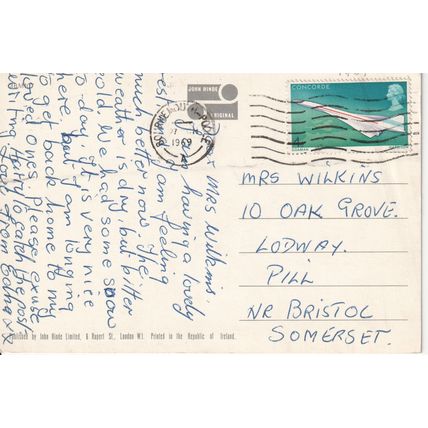 Mrs Wilkins.
having a lovely
rest am feeling
much better now the
weather is dry but bitter
cold we had some snow
to-day, it is very nice
here but I am longing
to get back home to my
loved ones please excuse
hurry to catch the post
love from Edna xx
JOHN HINDE
ORIGINAL
BOURNEMOUTH-POOLE
1969
A
CONCORDE
4d
MRS WILKINS
10 OAK GROVE.
LODWAY.
PILL
NR BRISTOL
SOMERSET.
Published by John Hinde Limited, 6 Rupert St., London W.1. Printed in the Republic of Ireland.